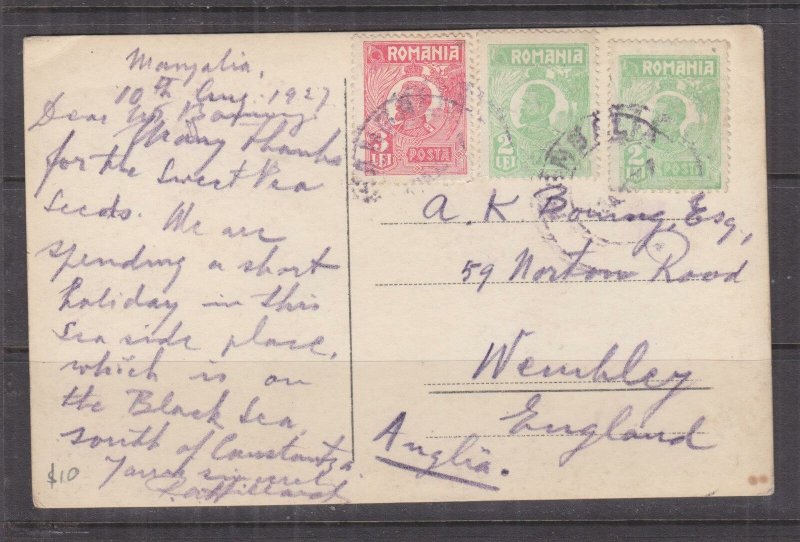 Mangalia,
10th Aug. 1927
Dear Mr
Many thanks
for the Sweet Pea
Seeds. We are
spending a short
holiday in this
Sea side place,
which is on
the Black Sea,
south of Constantza.
Yours sincerely
$10
ROMANIA
3 LEI
POSTA
ROMANIA
2 LEI
POSTA
ROMANIA
2 LEI
POSTA
A. K. Esq.,
59 Norton Road
Wembley
England
Anglia.